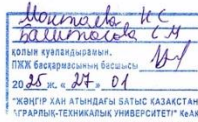 Монтаева Н С
Баимтасова С М
қолын куәландырамын.
ПЖЖ басқармасының басшысы
2025 ж. «27» 01
"ЖӘҢГІР ХАН АТЫНДАҒЫ БАТЫС ҚАЗАҚСТАН
АГРАРЛЫҚ-ТЕХНИКАЛЫҚ УНИВЕРСИТЕТІ" КеАҚ